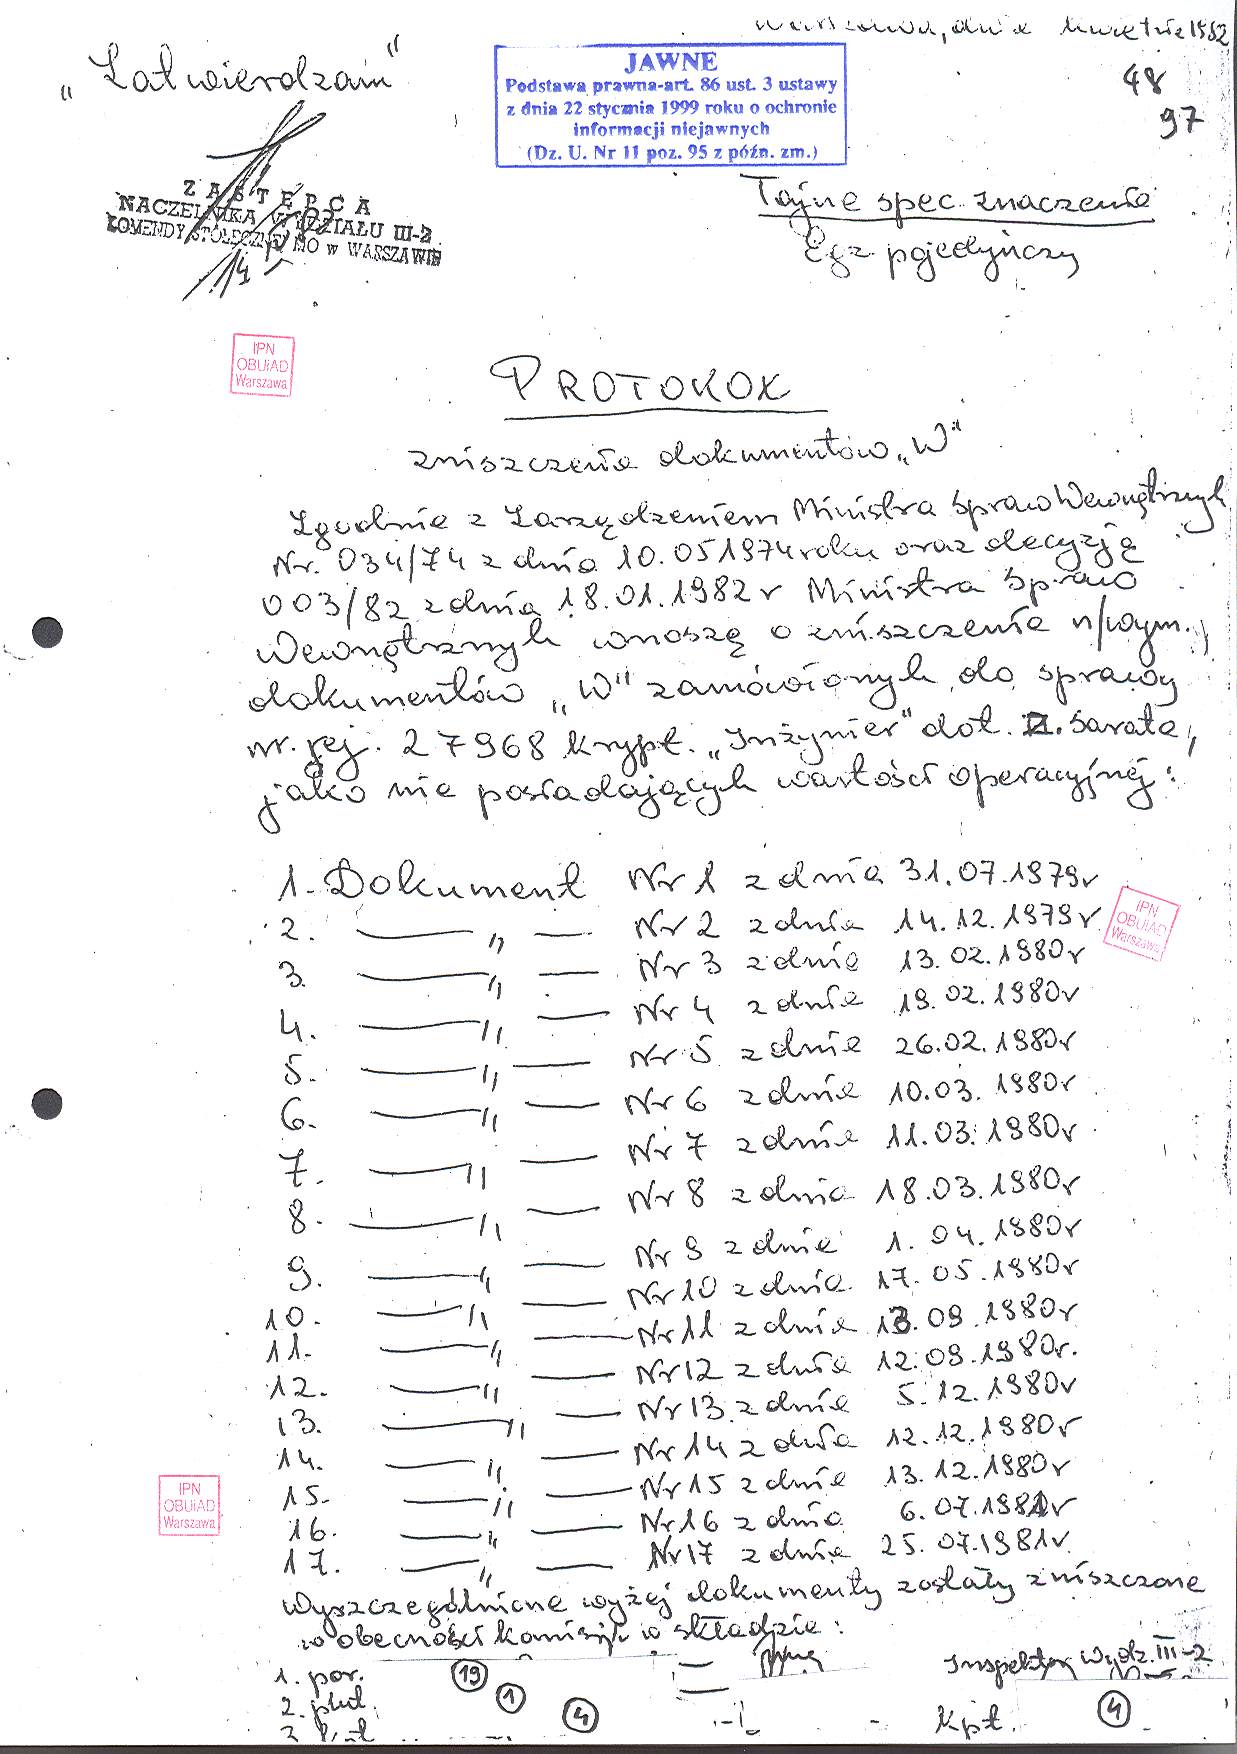 Warszawa, dnia kwietnia 1982
„Zatwierdzam"
JAWNE
Podstawa prawna-art. 86 ust. 3 ustawy
z dnia 22 stycznia 1999 roku o ochronie
informacji niejawnych
(Dz. U. Nr 11 poz. 95 z późn. zm.)
48
97
ZASTĘPCA
NACZELNIKA WYDZIAŁU III-2
KOMENDY STOŁECZNEJ MO w WARSZAWIE
Tajne spec. znaczenia
Egz. pojedyńczy
IPN
OBUiAD
Warszawa
PROTOKOŁ
zniszczenia dokumentów „W"
Zgodnie z Zarządzeniem Ministra Spraw Wewnętrznych
Nr. 034/74 z dnia 10.05.1974 roku oraz decyzją
003/82 z dnia 18.01.1982 r Ministra Spraw
Wewnętrznych wnoszę o zniszczenie n/wym.
dokumentów „W" zamówionych do sprawy
nr. rej. 27968 krypt. „Inżynier" dot. Z. Sarata,
jako nie posiadających wartości operacyjnej:
1. Dokument Nr 1 z dnia 31.07.1979r
2. — „ — Nr 2 z dnia 14.12.1979r
IPN
OBUiAD
Warszawa
3. — „ — Nr 3 z dnia 13.02.1980r
4. — „ — Nr 4 z dnia 19.02.1980r
5. — „ — Nr 5 z dnia 26.02.1980r
6. — „ — Nr 6 z dnia 10.03.1980r
7. — „ — Nr 7 z dnia 11.03.1980r
8. — „ — Nr 8 z dnia 18.03.1980r
9. — „ — Nr 9 z dnia 1.04.1980r
10. — „ — Nr 10 z dnia 17.05.1980r
11. — „ — Nr 11 z dnia 09.1980r
12. — „ — Nr 12 z dnia 12.09.1980r.
13. — „ — Nr 13 z dnia 5.12.1980r
14. — „ — Nr 14 z dnia 12.12.1980r
15. — „ — Nr 15 z dnia 13.12.1980r
16. — „ — Nr 16 z dnia 6.07.1981r
17. — „ — Nr 17 z dnia 25.07.1981r
IPN
OBUiAD
Warszawa
Wyszczególnione wyżej dokumenty zostały zniszczone
w obecności komisji w składzie:
1. por. 19 — Inspektor Wydz. III-2
2. plut. 1 —
3. 4 kpt. 4